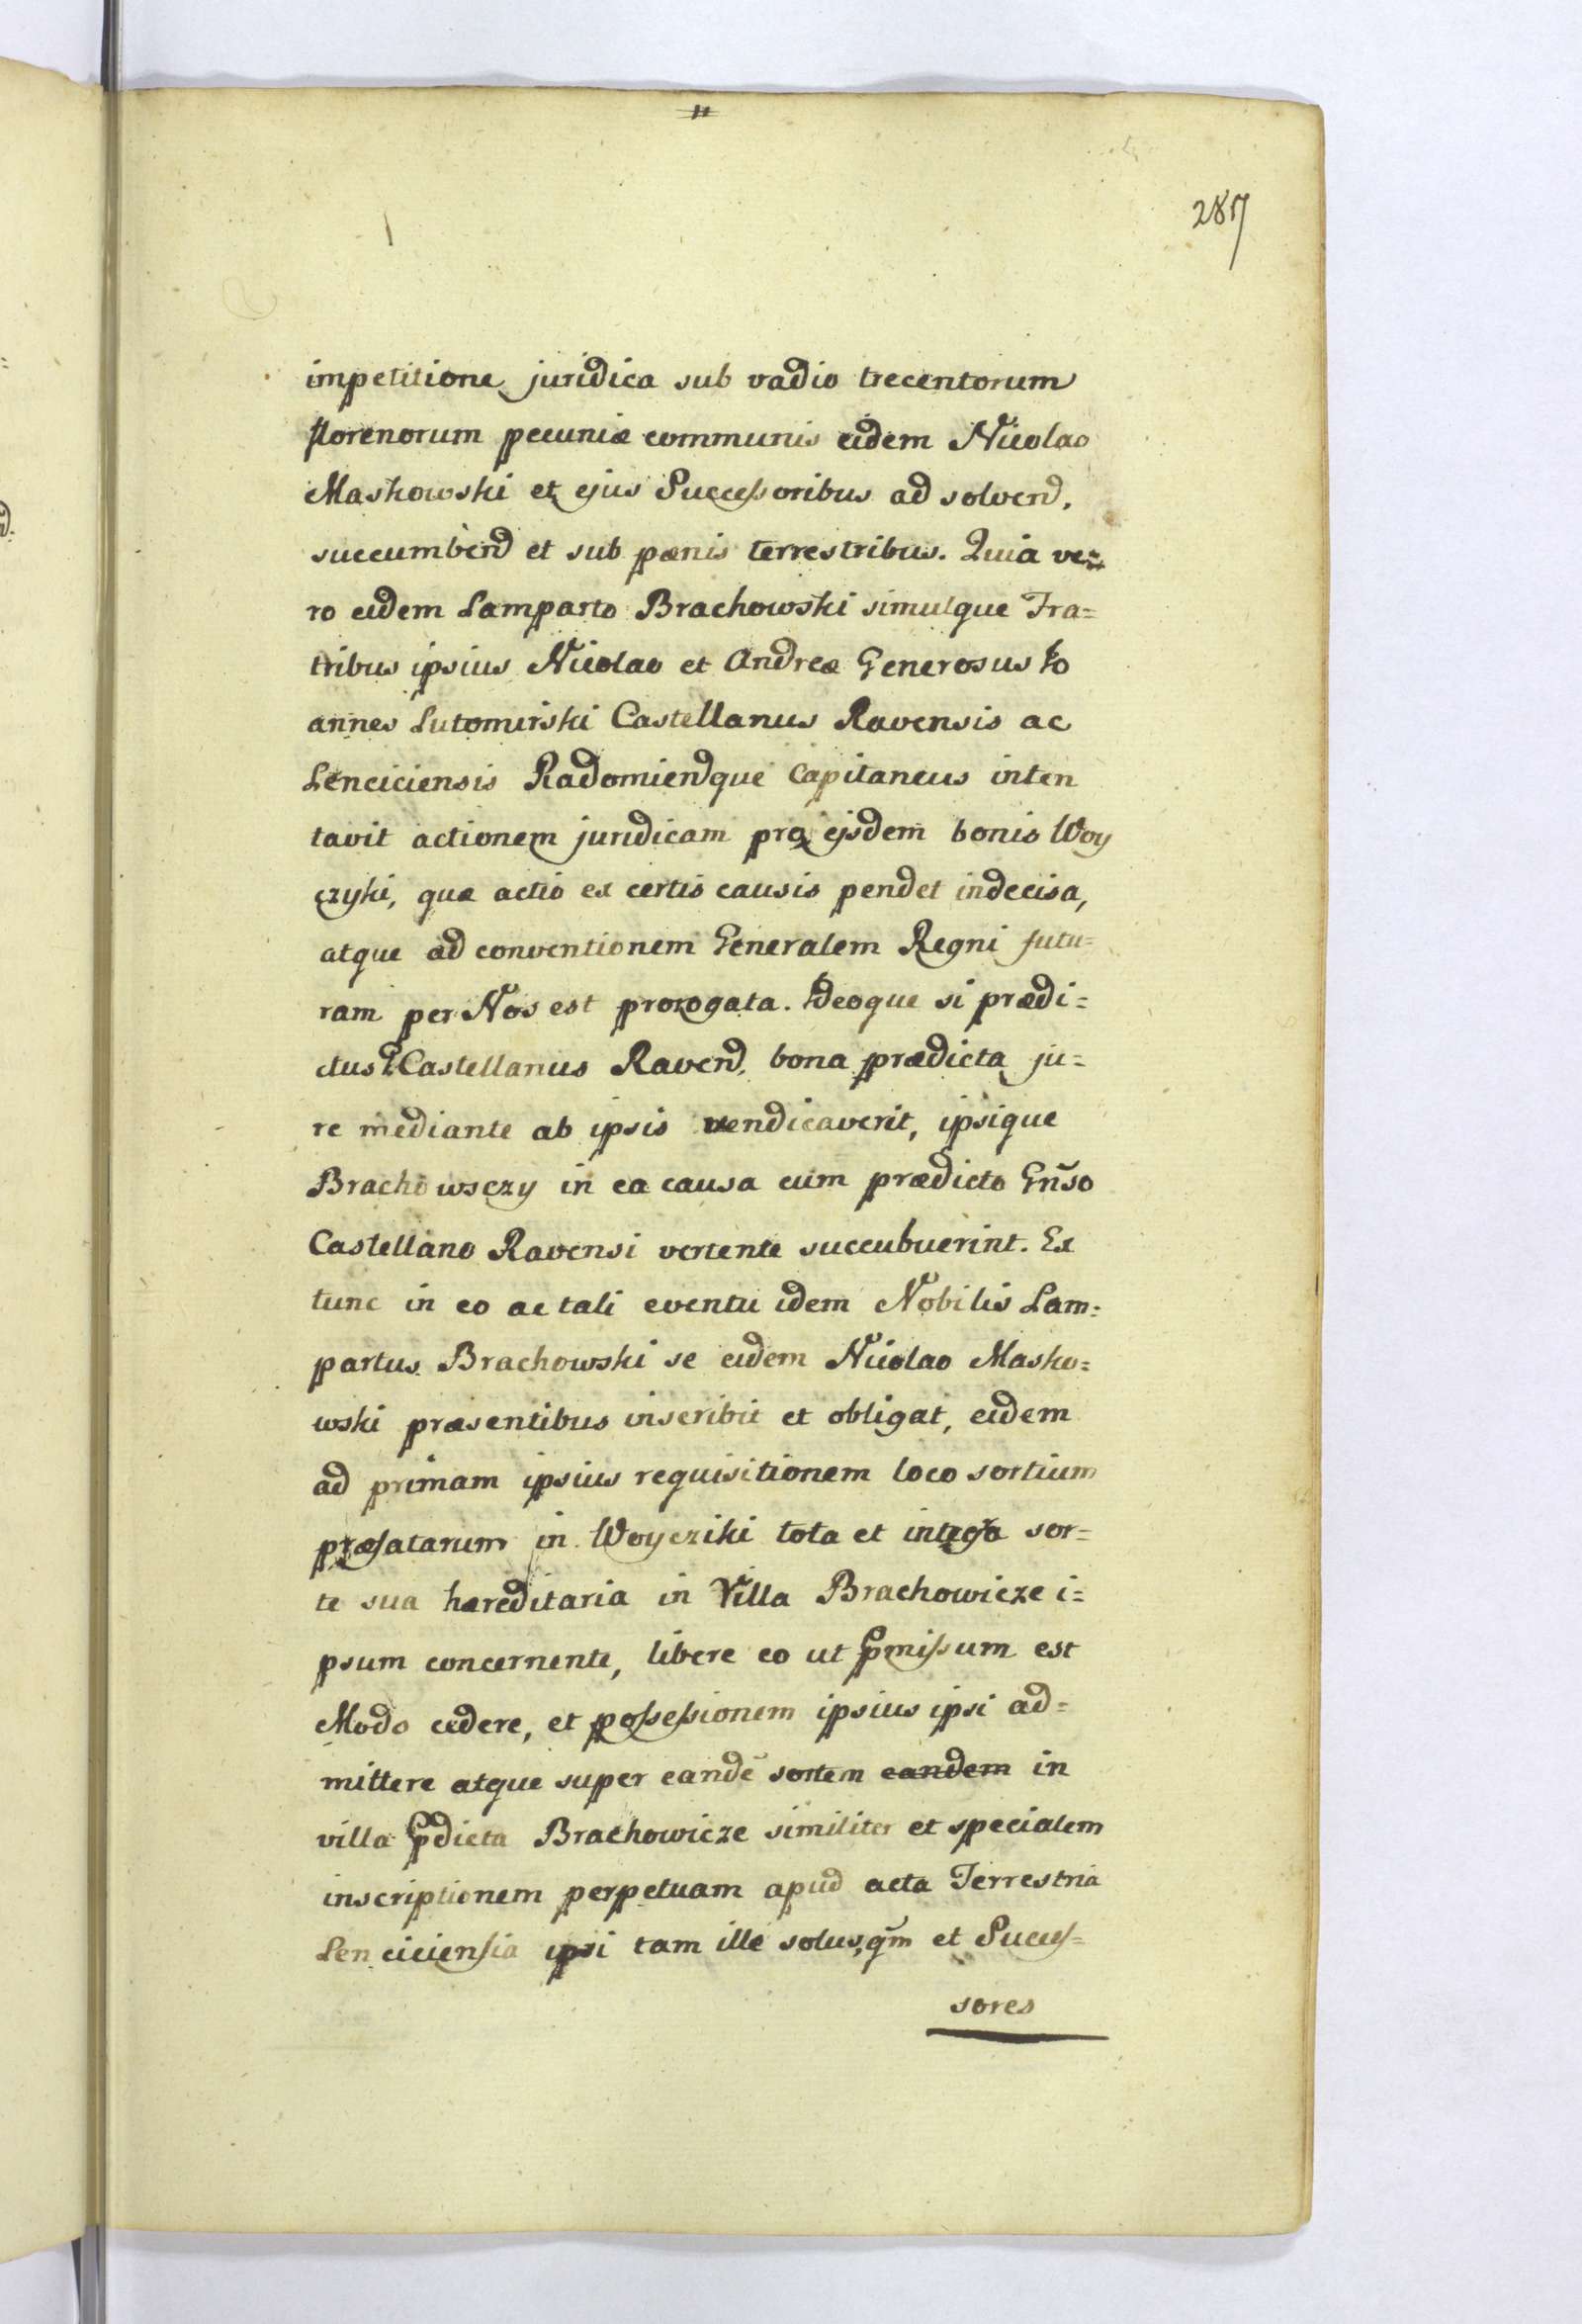 287
impetitione juridica sub vadio trecentorum
florenorum pecuniæ communis eidem Nicolao
Maskowski et ejus Successoribus ad solvend.
succumbend et sub pœnis terrestribus. Quia ve=
ro eidem Lamparto Brachowski simulque Fra=
tribus ipsius Nicolao et Andreæ Generosus Jo
annes Lutomirski Castellanus Ravensis ac
Lenciciensis Radomiend que Capitaneus inten
tavit actionem juridicam pro ejsdem bonis Woy
czyki, quæ actio ex certis causis pendet indecisa,
atque ad conventionem Generalem Regni futu=
ram per Nos est prorogata. Ideoque si prædi=
ctus G. Castellanus Ravend. bona prædicta ju=
re mediante ab ipsis vendicaverit, ipsique
Brachowsczy in ea causa cum prædicto Gñso
Castellano Ravensi vertente succubuerint. Ex
tunc in eo ac tali eventu idem Nobilis Lam=
partus Brachowski se eidem Nicolao Masko=
wski præsentibus inscribit et obligat, eidem
ad primam ipsius requisitionem loco sortium
præfatarum in Woycziki tota et integra sor=
te sua hæreditaria in Villa Brachowicze i=
psum concernente, libere eo ut pmissum est
Modo cedere, et possessionem ipsius ipsi ad=
mittere atque super eandē sortem eandem in
villa pdicta Brachowicze similiter et specialem
inscriptionem perpetuam apud acta Terrestria
Lenciciensia ipsi tam ille solus, qm̃ et Succes=
sores